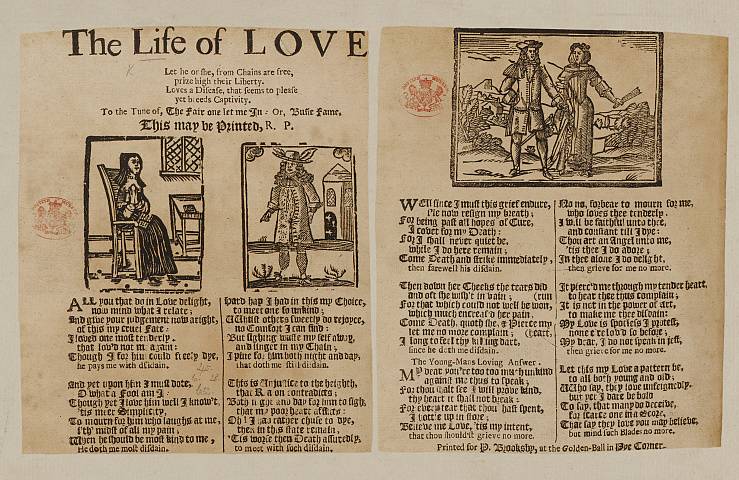 The Life of LOVE
Let he or she, from Chains are free,
prize high their Liberty.
Loves a Disease, that seems to please
yet breeds Captivity.
To the Tune of, The Fair one let me In: Or, Busie Fame,
This may be Printed, R. P.
ALL you that do in Love delight,
now mind what I relate;
And give your judgement now aright,
of this my cruel Fate:
I loved one most tenderly:
that lov'd not m. again:
Though I for him could freely dye,
he pays me with disdain.
And yet upon him I must dote,
O what a Fool am I:
Though yet I love him well I know't,
'tis meer Simplicity,
To mourn for him who laughs at me,
i'th' midst of all my pain;
When he should be most kind to me,
He doth me most disdain.
Hard hap I had in this my Choice,
to meet one so unkind;
Whilst others sweetly do rejoyce,
no Comfort I can find:
But sighing waste my self away,
and linger in my Chain,
I pine for him both night and day,
that doth me still disdain.
This is Injustice to the heighth,
that Reason contradicts;
Both night and day for him to sigh,
that my poor heart afflicts:
Oh! I had rather chuse to dye,
then in this state remain,
'Tis worse then Death assuredly,
to meet with such disdain.
WEll since I must this grief endure,
I'le now resign my breath;
For being past all hopes of Cure,
I covet for my Death:
For I shall never quiet be,
while I do here remain;
Come Death and strike immediately,
then farewel his disdain.
Then down her Cheeks the tears did
and oft she wish't in vain; (run
For that which could not well be won,
which much encreas'd her pain
Come Death, quoth she, & Pierce my
let me no more complain; (heart,
I long to feel thy killing dart,
since he doth me disdain.
The Young-Mans Loving Answer.
MY dear you're too too much unkind
against me thus to speak;
For thou shalt see I will prove kind,
thy heart it shall not break:
For every tear that thou hast spent,
I lov'e up in store;
Believe me Love, 'tis my intent,
that thou should'st grieve no more.
No no, forbear to mourn for me,
who loves thee tenderly.
I will be faithful unto thee,
and constant till I dye:
Thou art an Angel unto me,
'tis thee I do adore;
In thee alone I do delight,
then grieve for me no more.
It pierc'd me through my tender heart,
to hear thee thus complain;
It is not in the power of Art,
to make me thee disdain:
My Love is spotless I protest,
none e're lov'd so before;
My dear, I do not speak in jest,
then grieve for me no more.
Let this my Love a pattern be,
to all both young and old;
Who say, they love unfeignedly.
but yet I dare be bold
To say, that many do deceive,
for scarce one in a score,
That say they love you may believe,
but mind such Blades no more.
Printed for P. Brooksby, at the Golden-Ball in Pye Corner.